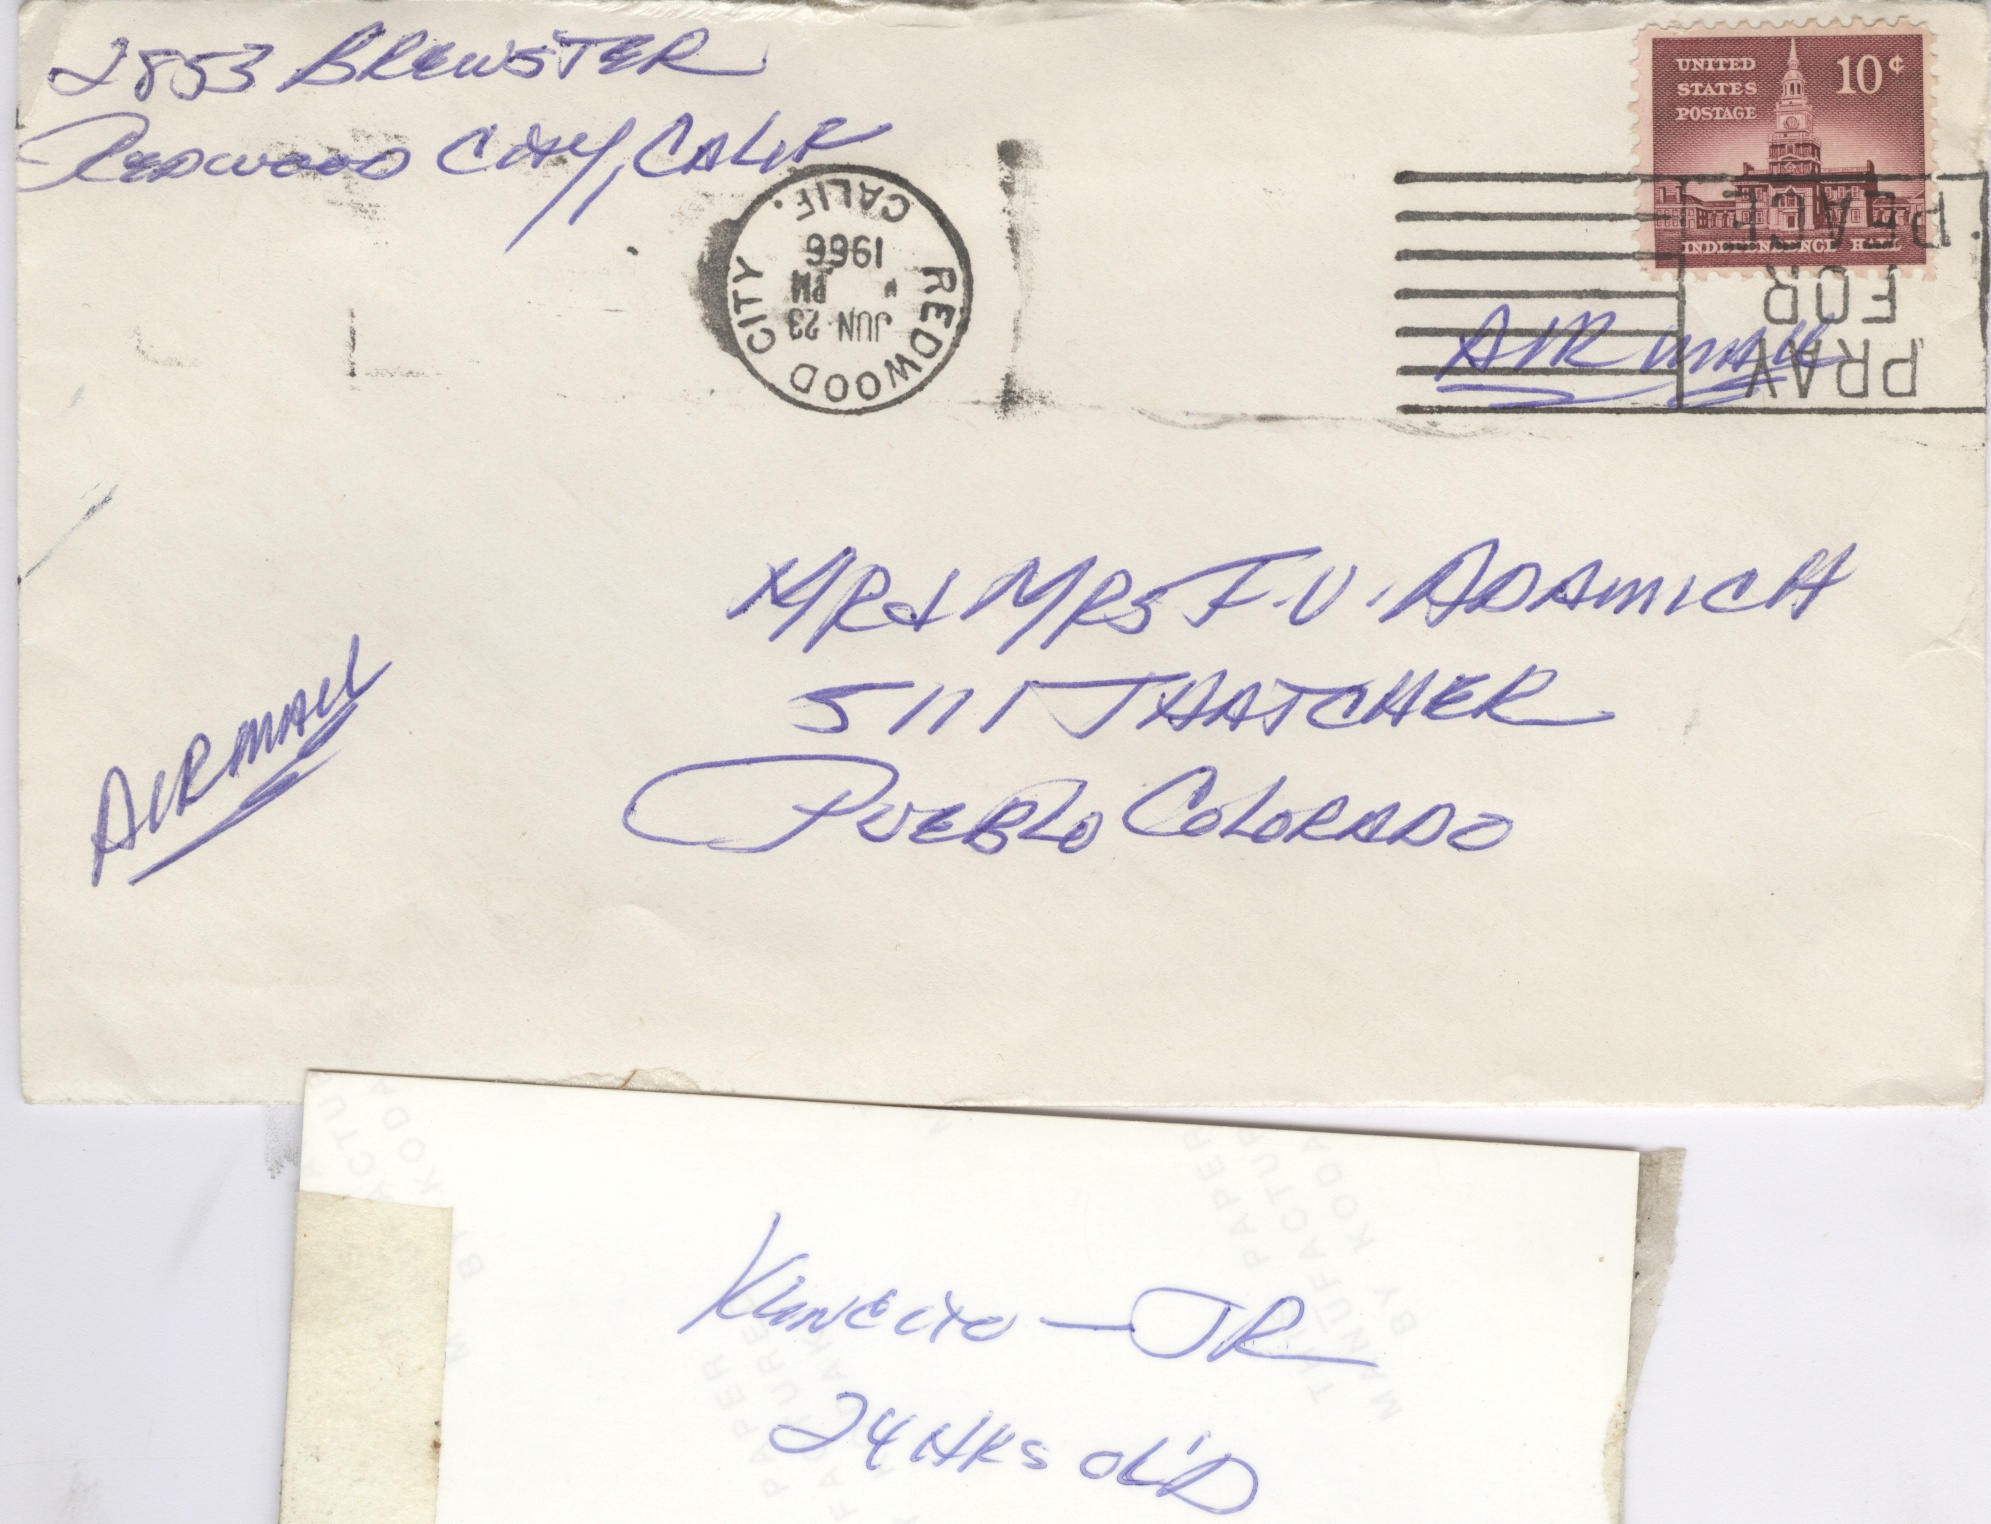 2853 BREWSTER
REDWOOD CITY, CALIF
UNITED
STATES
POSTAGE
10¢
INDEPENDENCE HALL
REDWOOD CITY CALIF.
JUN 23
PM
1966
PRAY
FOR
PEACE
AIR MAIL
MR & MRS F.V. ADAMICH
5111 THATCHER
PUEBLO COLORADO
AIRMAIL
THIS PAPER
MANUFACTURED
BY KODAK
JR
24 HRS OLD